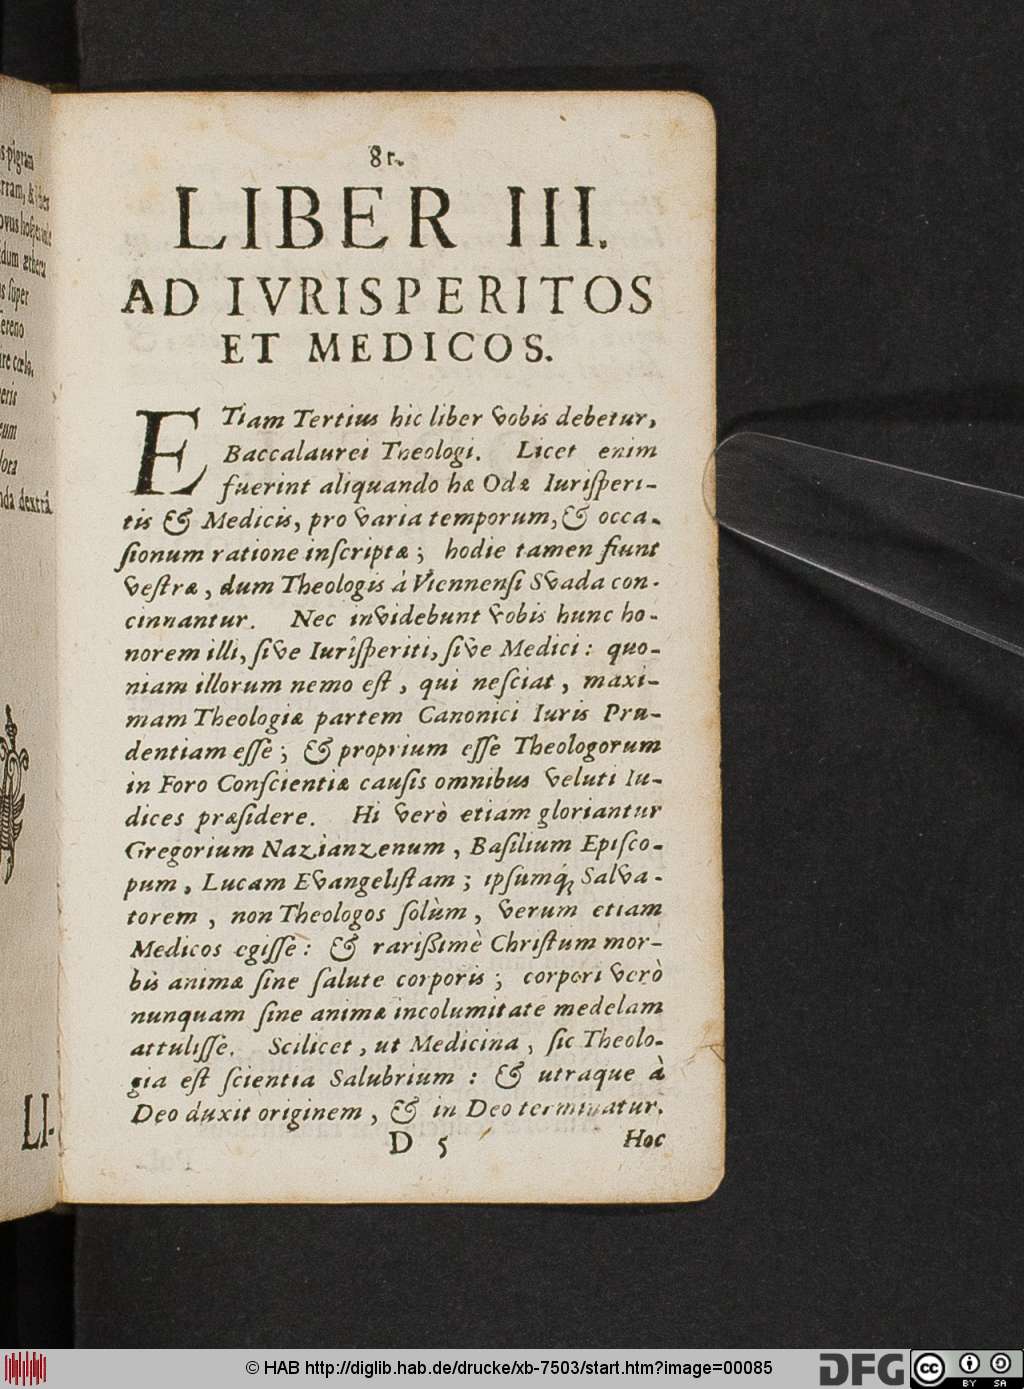 81.
LIBER III.
AD IVRISPERITOS
ET MEDICOS.
ETiam Tertius hic liber vobis debetur,
Baccalaurei Theologi. Licet enim
fuerint aliquando hæ Odæ Iuriſperi-
tis & Medicis, pro varia temporum, & occa-
ſionum ratione inſcriptæ; hodie tamen fiunt
veſtræ, dum Theologis à Viennenſi Svada con-
cinnantur. Nec invidebunt vobis hunc ho-
norem illi, ſive Iuriſperiti, ſive Medici: quo-
niam illorum nemo eſt, qui neſciat, maxi-
mam Theologiæ partem Canonici Iuris Pru-
dentiam eſſe; & proprium eſſe Theologorum
in Foro Conſcientiæ cauſis omnibus veluti Iu-
dices præſidere. Hi verò etiam gloriantur
Gregorium Nazianzenum, Baſilium Epiſco-
pum, Lucam Evangeliſtam; ipſúmq́; Salva-
torem, non Theologos ſolùm, verum etiam
Medicos egiſſe: & rariſſimè Chriſtum mor-
bis animæ ſine ſalute corporis; corpori verò
nunquam ſine animæ incolumitate medelam
attuliſſe. Scilicet, ut Medicina, ſic Theolo-
gia eſt ſcientia Salubrium: & utraque à
Deo duxit originem, & in Deo terminatur.
D 5 Hoc
pigram
ſuper
cœlo,
dextrâ
LI-
© HAB http://diglib.hab.de/drucke/xb-7503/start.htm?image=00085
DFG
cc BY SA